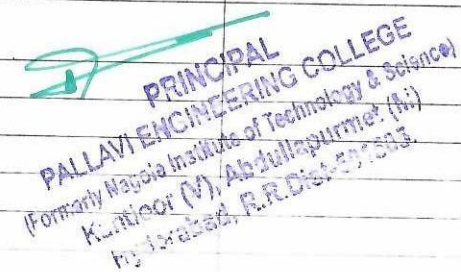 PRINCIPAL
PALLAVI ENGINEERING COLLEGE
(Formarly Nagole Institute of Technology & Science)
Kuntloor (V), Abdullapurmet (M)
Hyderabad, R.R.Dist-501505.